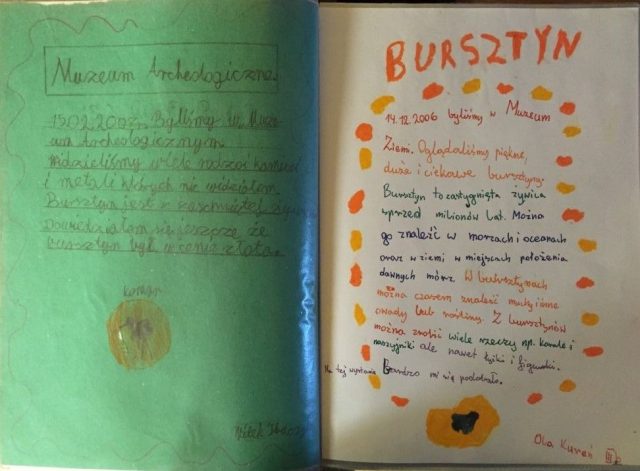 Muzeum Archeologiczne
Byliśmy w Muze-
um Archeologicznym
widzieliśmy wiele rodzai kamieni
i metali których nie widziałem
Bursztyn jest z
Dowiedziałam się jeszcze że
bursztyn był w cenie złota.
komar
BURSZTYN
14.12.2006 byliśmy w Muzeum
Ziemi. Oglądaliśmy piękne,
duże i ciekawe bursztyny.
Bursztyn to zastygnięta żywica
sprzed milionów lat. Można
go znaleźć w morzach i oceanach
oraz w ziemi w miejscach położenia
dawnych mórz. W bursztynach
można czasem znaleźć muchy i inne
owady lub rośliny. Z bursztynów
można zrobić wiele rzeczy np. korale i
naszyjniki ale nawet łyżki i figurki.
Na tej wystawie Bardzo mi się podobało.
Ola Kureń III b